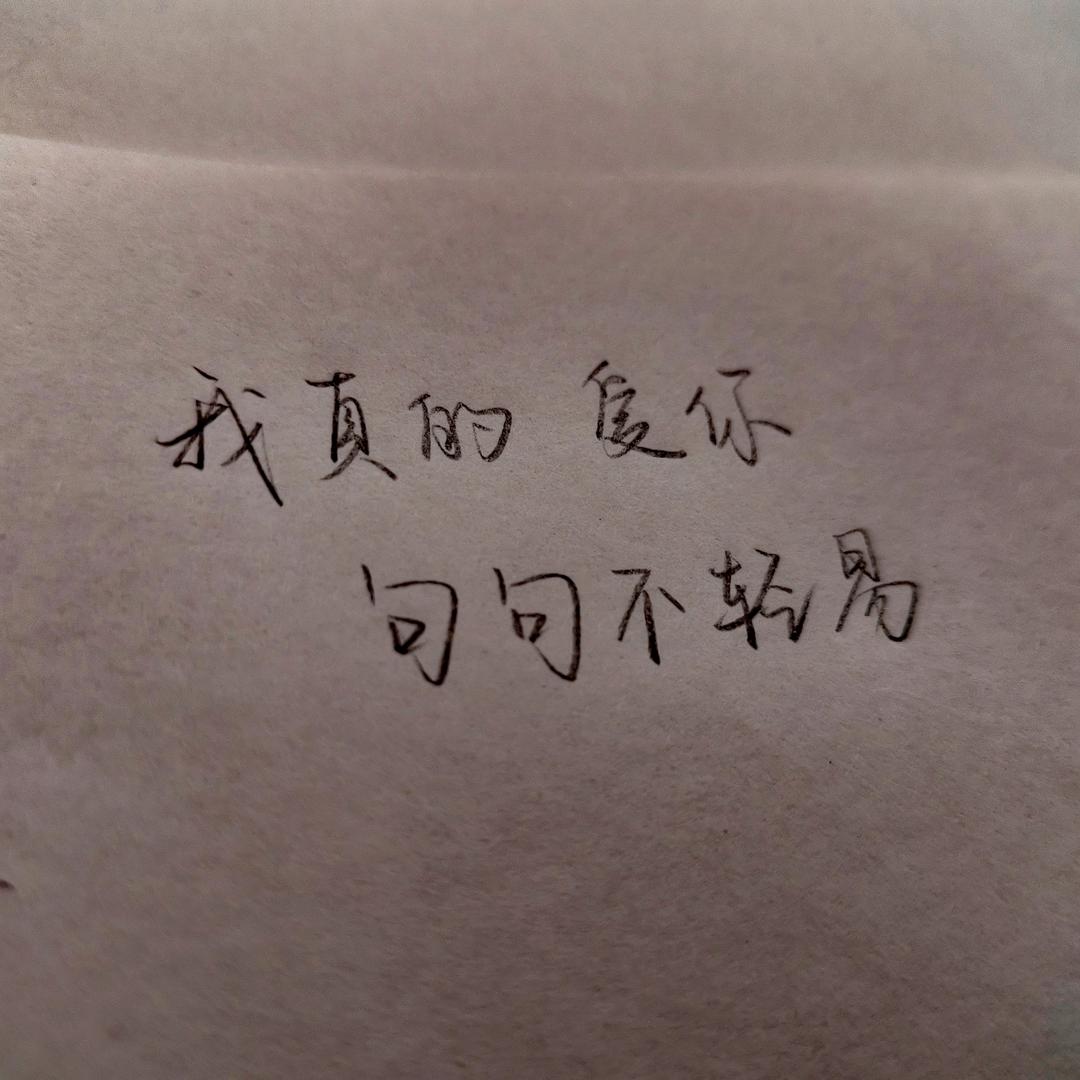 我真的爱你
句句不轻易